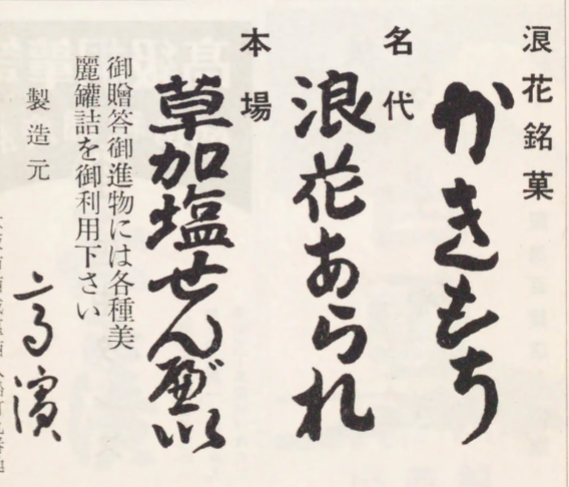 浪花銘菓
かきもち
名代
浪花あられ
本場
草加塩せんべい
御贈答御進物には各種美
麗罐詰を御利用下さい
製造元
高濱